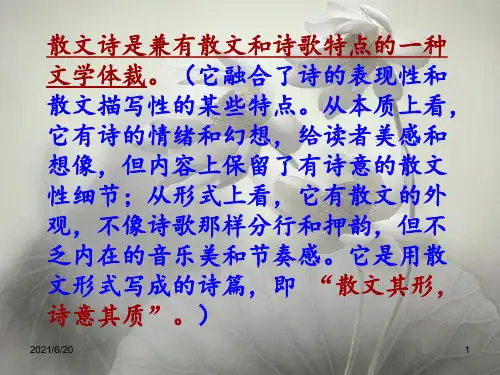 散文诗是兼有散文和诗歌特点的一种
文学体裁。（它融合了诗的表现性和
散文描写性的某些特点。从本质上看，
它有诗的情绪和幻想，给读者美感和
想像，但内容上保留了有诗意的散文
性细节；从形式上看，它有散文的外
观，不像诗歌那样分行和押韵，但不
乏内在的音乐美和节奏感。它是用散
文形式写成的诗篇，即 “散文其形，
诗意其质”。）
2021/6/20
1